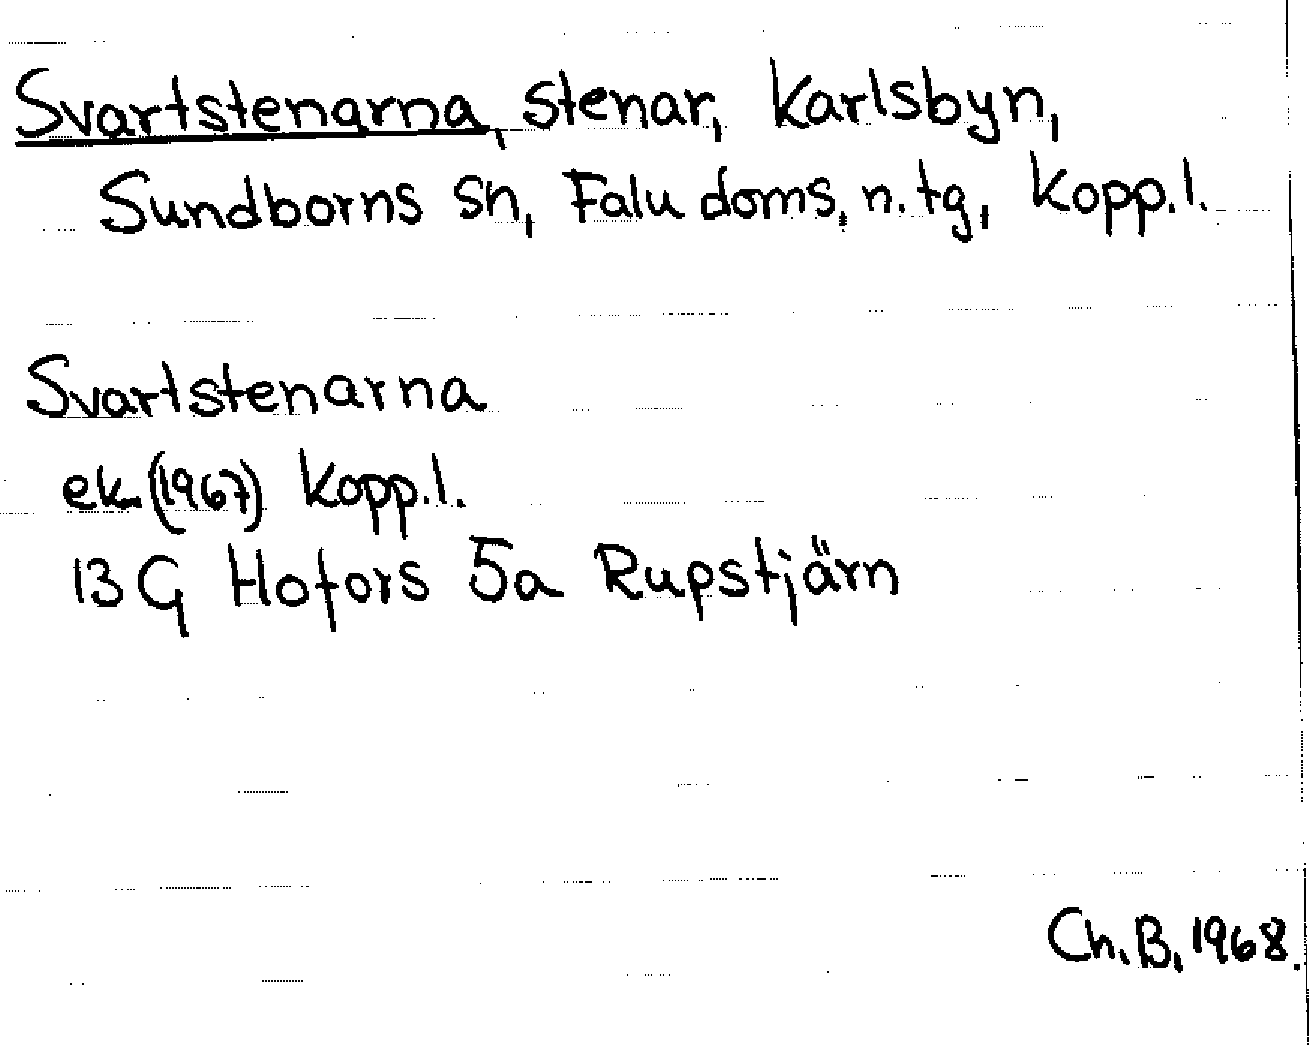 Svartstenarna, stenar, Karlsbyn,
Sundborns sn, Falu doms. n. tg, Kopp.l.
Svartstenarna
ek. (1967) Kopp.l.
13 G Hofors 5a Rupstjärn
Ch. B, 1968.